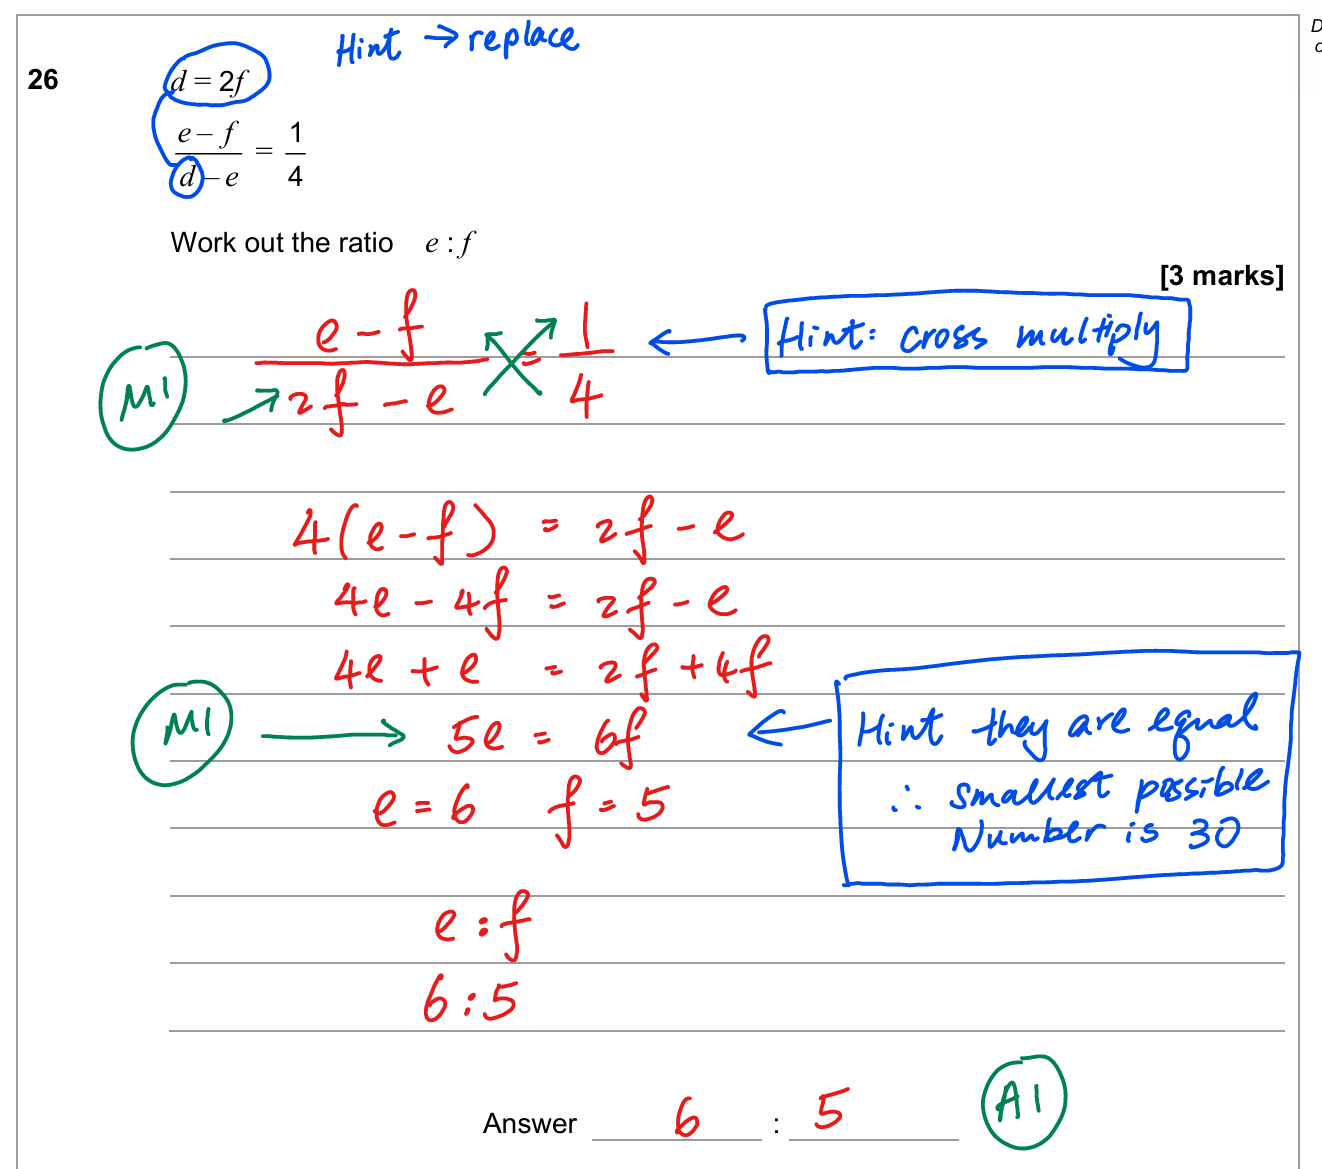 Hint → replace
D
o
26
d = 2f
e – f / d – e = 1 / 4
Work out the ratio e : f
[3 marks]
M1
e – f / 2f – e = 1 / 4
Hint: cross multiply
4(e – f) = 2f – e
4e – 4f = 2f – e
4e + e = 2f + 4f
M1
5e = 6f
Hint they are equal
∴ smallest possible
Number is 30
e = 6 f = 5
e : f
6 : 5
Answer 6 : 5
A1